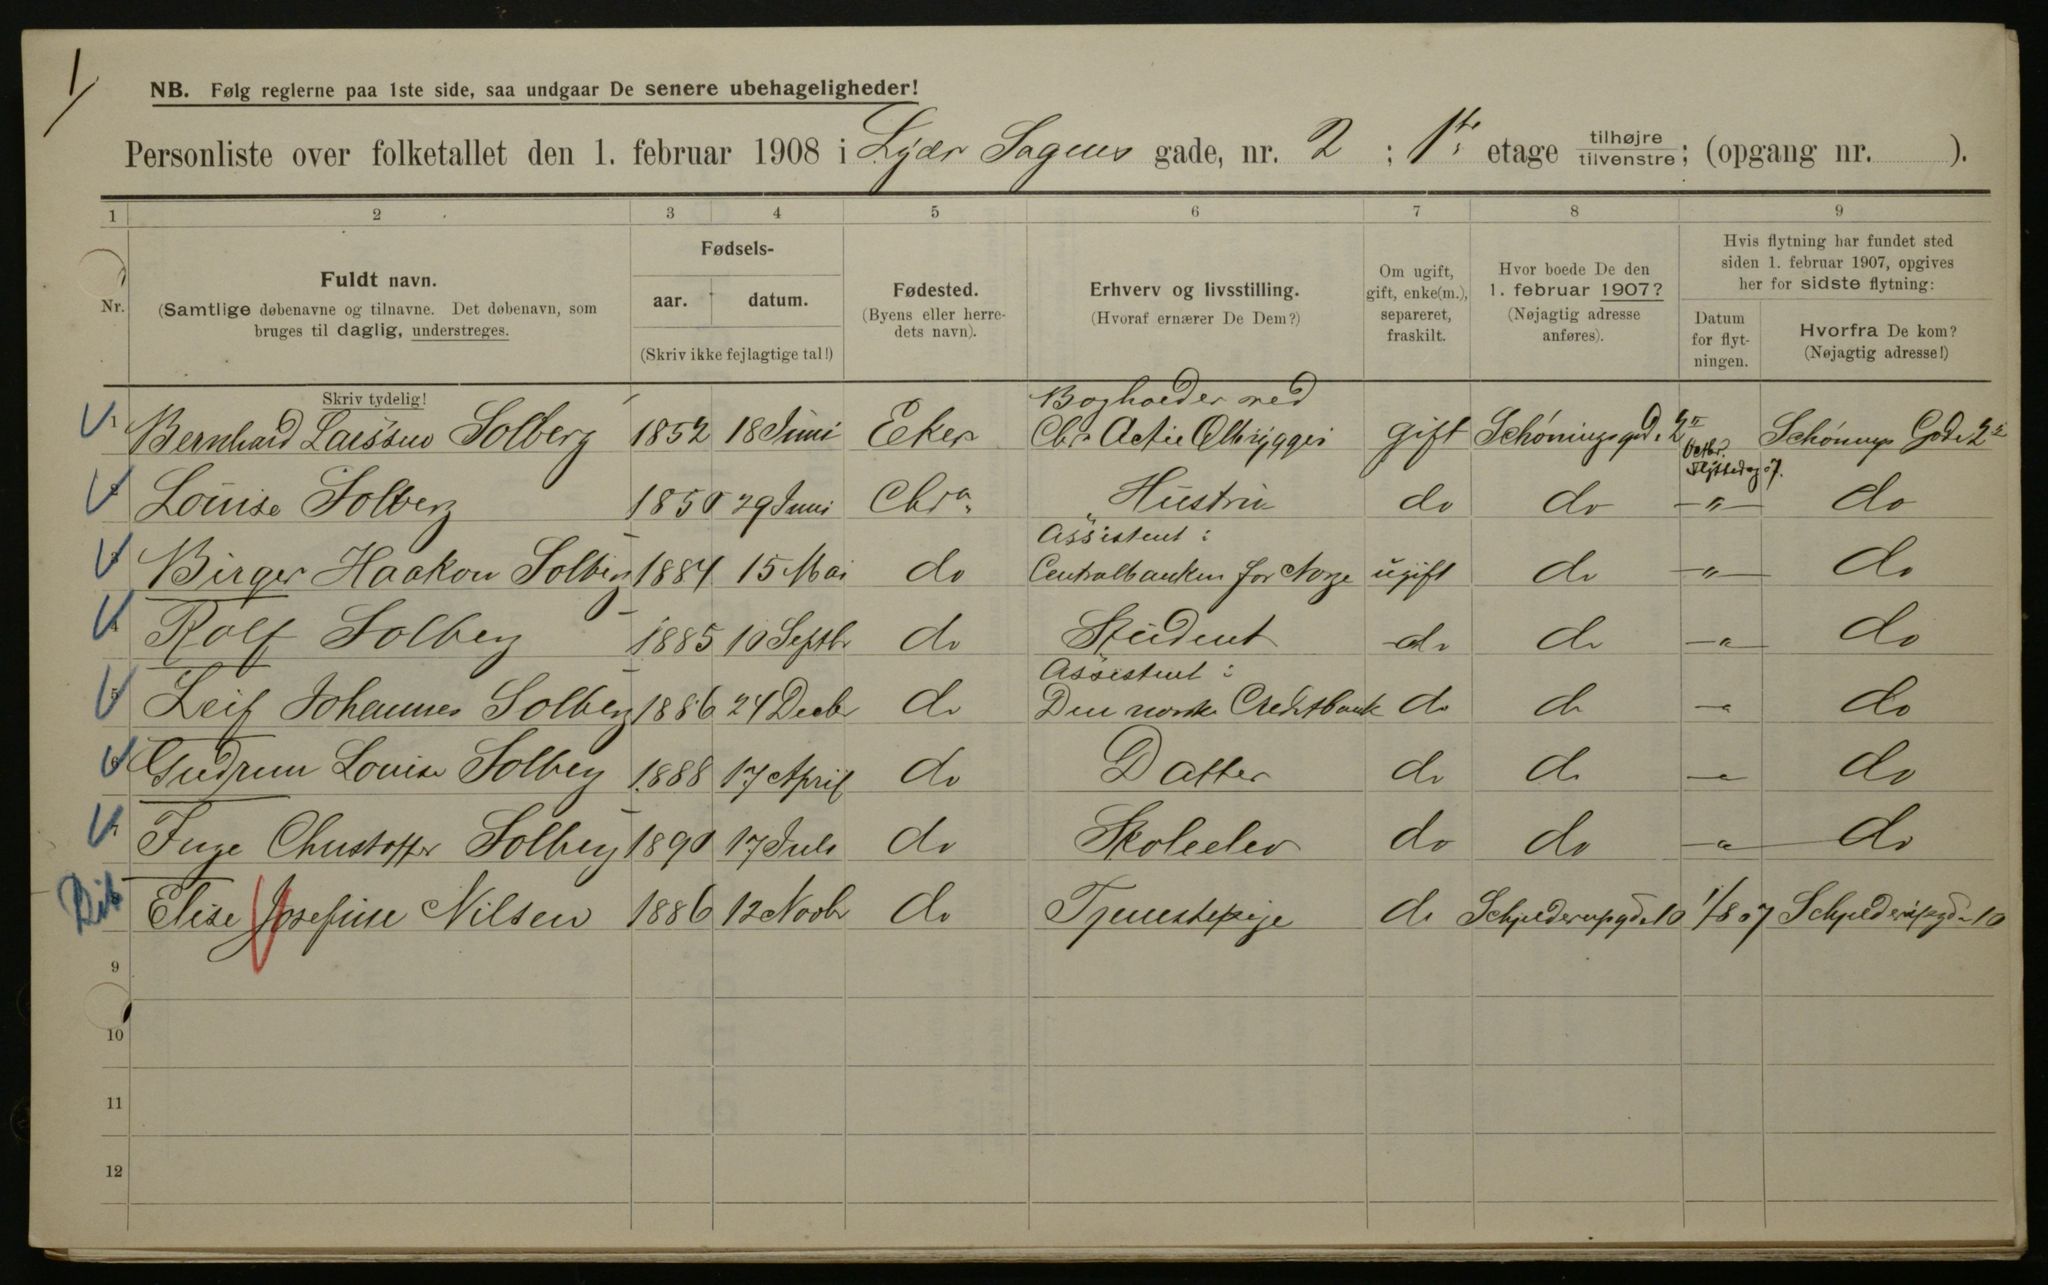 1
NB. Følg reglerne paa 1ste side, saa undgaar De senere ubehageligheder!
Personliste over folketallet den 1. februar 1908 i Lyder Sagens gade, nr. 2 ; 1ste etage tilhøjre tilvenstre; (opgang nr. ).
1 2 3 4 5 6 7 8 9
Nr.
Fuldt navn.
(Samtlige døbenavne og tilnavne. Det døbenavn, som
bruges til daglig, understreges.
Fødsels-
aar. datum.
(Skriv ikke fejlagtige tal!)
Fødested.
(Byens eller herre-
dets navn).
Erhverv og livsstilling.
(Hvoraf ernærer De Dem?)
Om ugift,
gift, enke(m.),
separeret,
fraskilt.
Hvor boede De den
1. februar 1907?
(Nøjagtig adresse
anføres).
Hvis flytning har fundet sted
siden 1. februar 1907, opgives
her for sidste flytning:
Datum
for flyt-
ningen.
Hvorfra De kom?
(Nøjagtig adresse!)
Skriv tydelig!
Bogholder ved
1 Bernhard Larssen Solberg 1852 18 Juni Eker Chra Actie Ølbryggeri gift Schøningsgd. 2 II Octbr. Flyttedag 07. Schønings Gade 2 II
2 Louise Solberg 1850 29 Juni Chra. Hustru do do -"- do
Assistent :
3 Birger Haakon Solberg 1884 15 Mai do Centralbanken for Norge ugift do -"- do
4 Rolf Solberg 1885 10 Septbr do Student do do -"- do
Assistent :
5 Leif Johannes Solberg 1886 24 Decbr do Den norske Creditbank do do -"- do
6 Gudrun Louise Solberg 1888 17 April do Datter do do -"- do
7 Inge Christoffer Solberg 1890 17 Juli do Skoleelev do do -"- do
Elise Josefine Nilsen 1886 12 Novbr do Tjenestepige do Schjelderupgd. 10 1/8 07 Schjelderupgd. 10
9
10
11
12